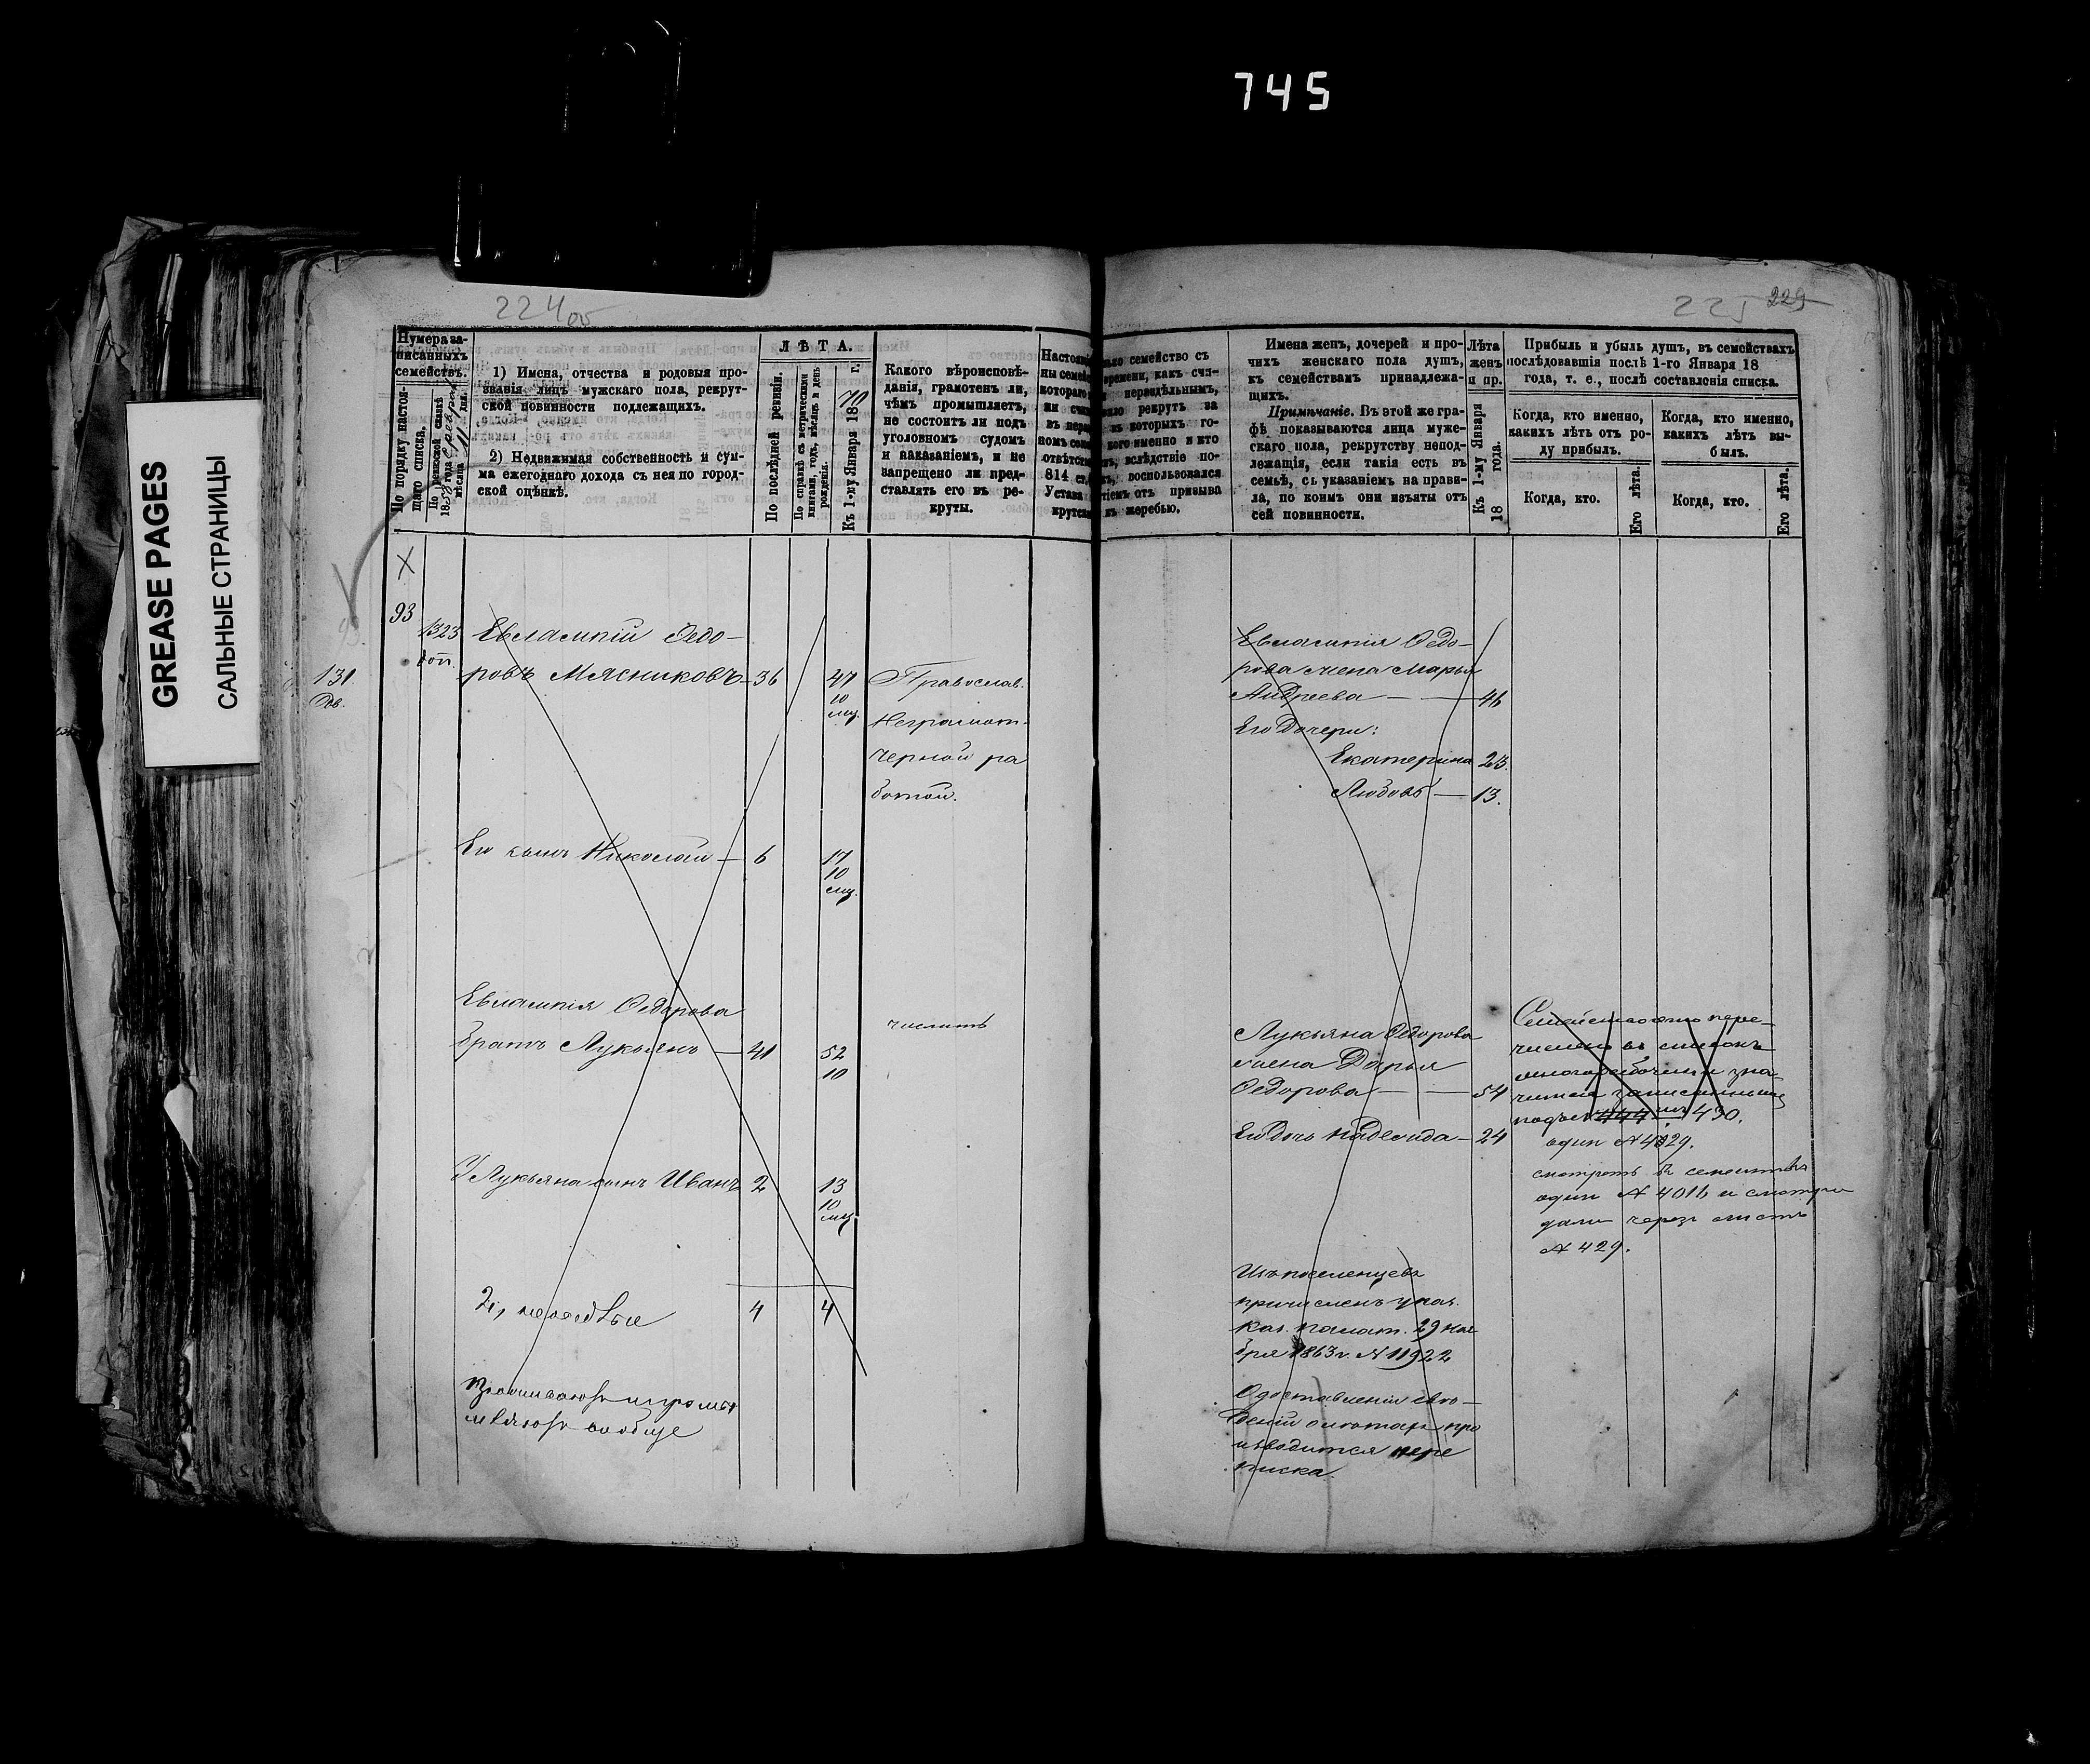 745
GREASE PAGES
САЛЬНЫЕ СТРАНИЦЫ
224 об
Нумера за-
писанныхъ
семействъ.
По порядку настоя-
щаго списка.
По ревизской сказкѣ
1858 года
мѣсяца 11 дня.
1) Имена, отчества и родовыя про-
званія лицъ мужскаго пола, рекрут-
ской повинности подлежащихъ.
2) Недвижимая собственность и сум-
ма ежегоднаго дохода съ нея по город-
ской оцѣнкѣ.
ЛѢТА.
По послѣдней ревизіи.
По справкѣ съ метрическими
книгами, годъ, мѣсяцъ и день
рожденія.
Къ 1-му Января 1870 г.
Какого вѣроисповѣ-
данія, грамотенъ ли,
чѣмъ промышляетъ,
не состоитъ ли подъ
уголовнымъ судомъ
и наказаніемъ, и не
запрещено ли пред-
ставлять его въ ре-
круты.
Настоя
ны семей
котораго
ли счи
въ нера
номъ сем
отвѣтств
814 ст.
Устава
крутск
X
93
1323
доп.
131
Евлампій Ѳедо-
ровъ Мясниковъ 36 47
10
мц.
Православ.
Неграмот.
черной ра
ботой.
Его сынъ Николай 6 17
10
мц.
Евлампія Ѳедорова
братъ Лукьянъ 41 52
10
числить
У Лукьяна сынъ Иванъ 2 13
10
мц
4 4
вообще
225 229
семейство съ
времени, какъ счи-
нераздѣльнымъ,
рекрутъ за
въ которыхъ го-
кого именно и кто
вслѣдствіе по-
воспользовался
тіемъ отъ призыва
къ жеребью.
Имена женъ, дочерей и про-
чихъ женскаго пола душъ,
къ семействамъ принадлежа-
щихъ.
Примѣчаніе. Въ этой же гра-
фѣ показываются лица муже-
скаго пола, рекрутству непод-
лежащія, если такія есть въ
семьѣ, съ указаніемъ на прави-
ла, по коимъ они изъяты отъ
сей повинности.
Лѣта
женъ
и пр.
Къ 1-му Января
18 года.
Прибыль и убыль душъ, въ семействахъ
послѣдовавшія послѣ 1-го Января 18
года, т. е., послѣ составленія списка.
Когда, кто именно,
какихъ лѣтъ отъ ро-
ду прибылъ.
Когда, кто именно,
какихъ лѣтъ вы-
былъ.
Когда, кто.
Его лѣта.
Когда, кто.
Его лѣта.
Евлампія Ѳедо-
рова жена Марья
Андреева 46
Его дочери:
Екатерина 23.
Любовь 13.
Лукьяна Ѳедорова
жена Дарья
Ѳедорова 54
Его дочь Надежда 24
Семейство это пере-
числено въ списокъ
430.
один №4329.
смотреть в семействѣ
один № 4016 и смотри
далее через листъ
№ 429.
Изъ поселенцевъ
причисленъ указ.
каз. палат. 29 ноя
бря 1863 г. № 11922
О доставленіи свѣ-
деній о лѣтахъ про
изводится пере
писка.